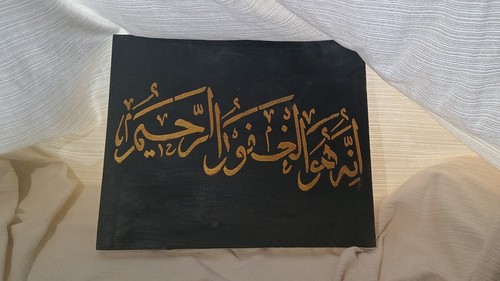 إِنَّهُ هُوَ الْغَفُورُ الرَّحِيمُ